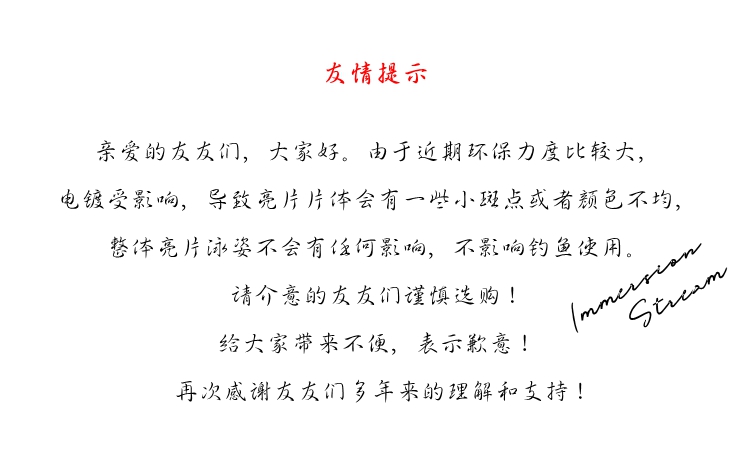 友情提示
亲爱的友友们，大家好。由于近期环保力度比较大，
电镀受影响，导致亮片片体会有一些小斑点或者颜色不均，
整体亮片泳姿不会有任何影响，不影响钓鱼使用。
请介意的友友们谨慎选购！
给大家带来不便，表示歉意！
再次感谢友友们多年来的理解和支持！
Immersion
Stream